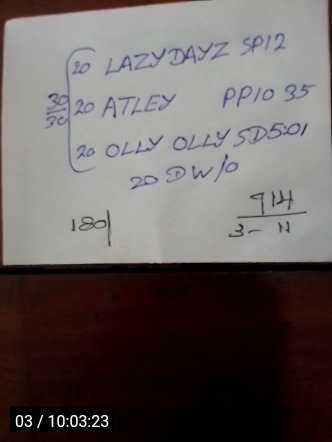 20 LAZYDAYZ SP12
30/30 20 ATLEY PP10 35
20 OLLY OLLY SD5.01
20 D W/O
180/
914
3 - 11
03 / 10:03:23